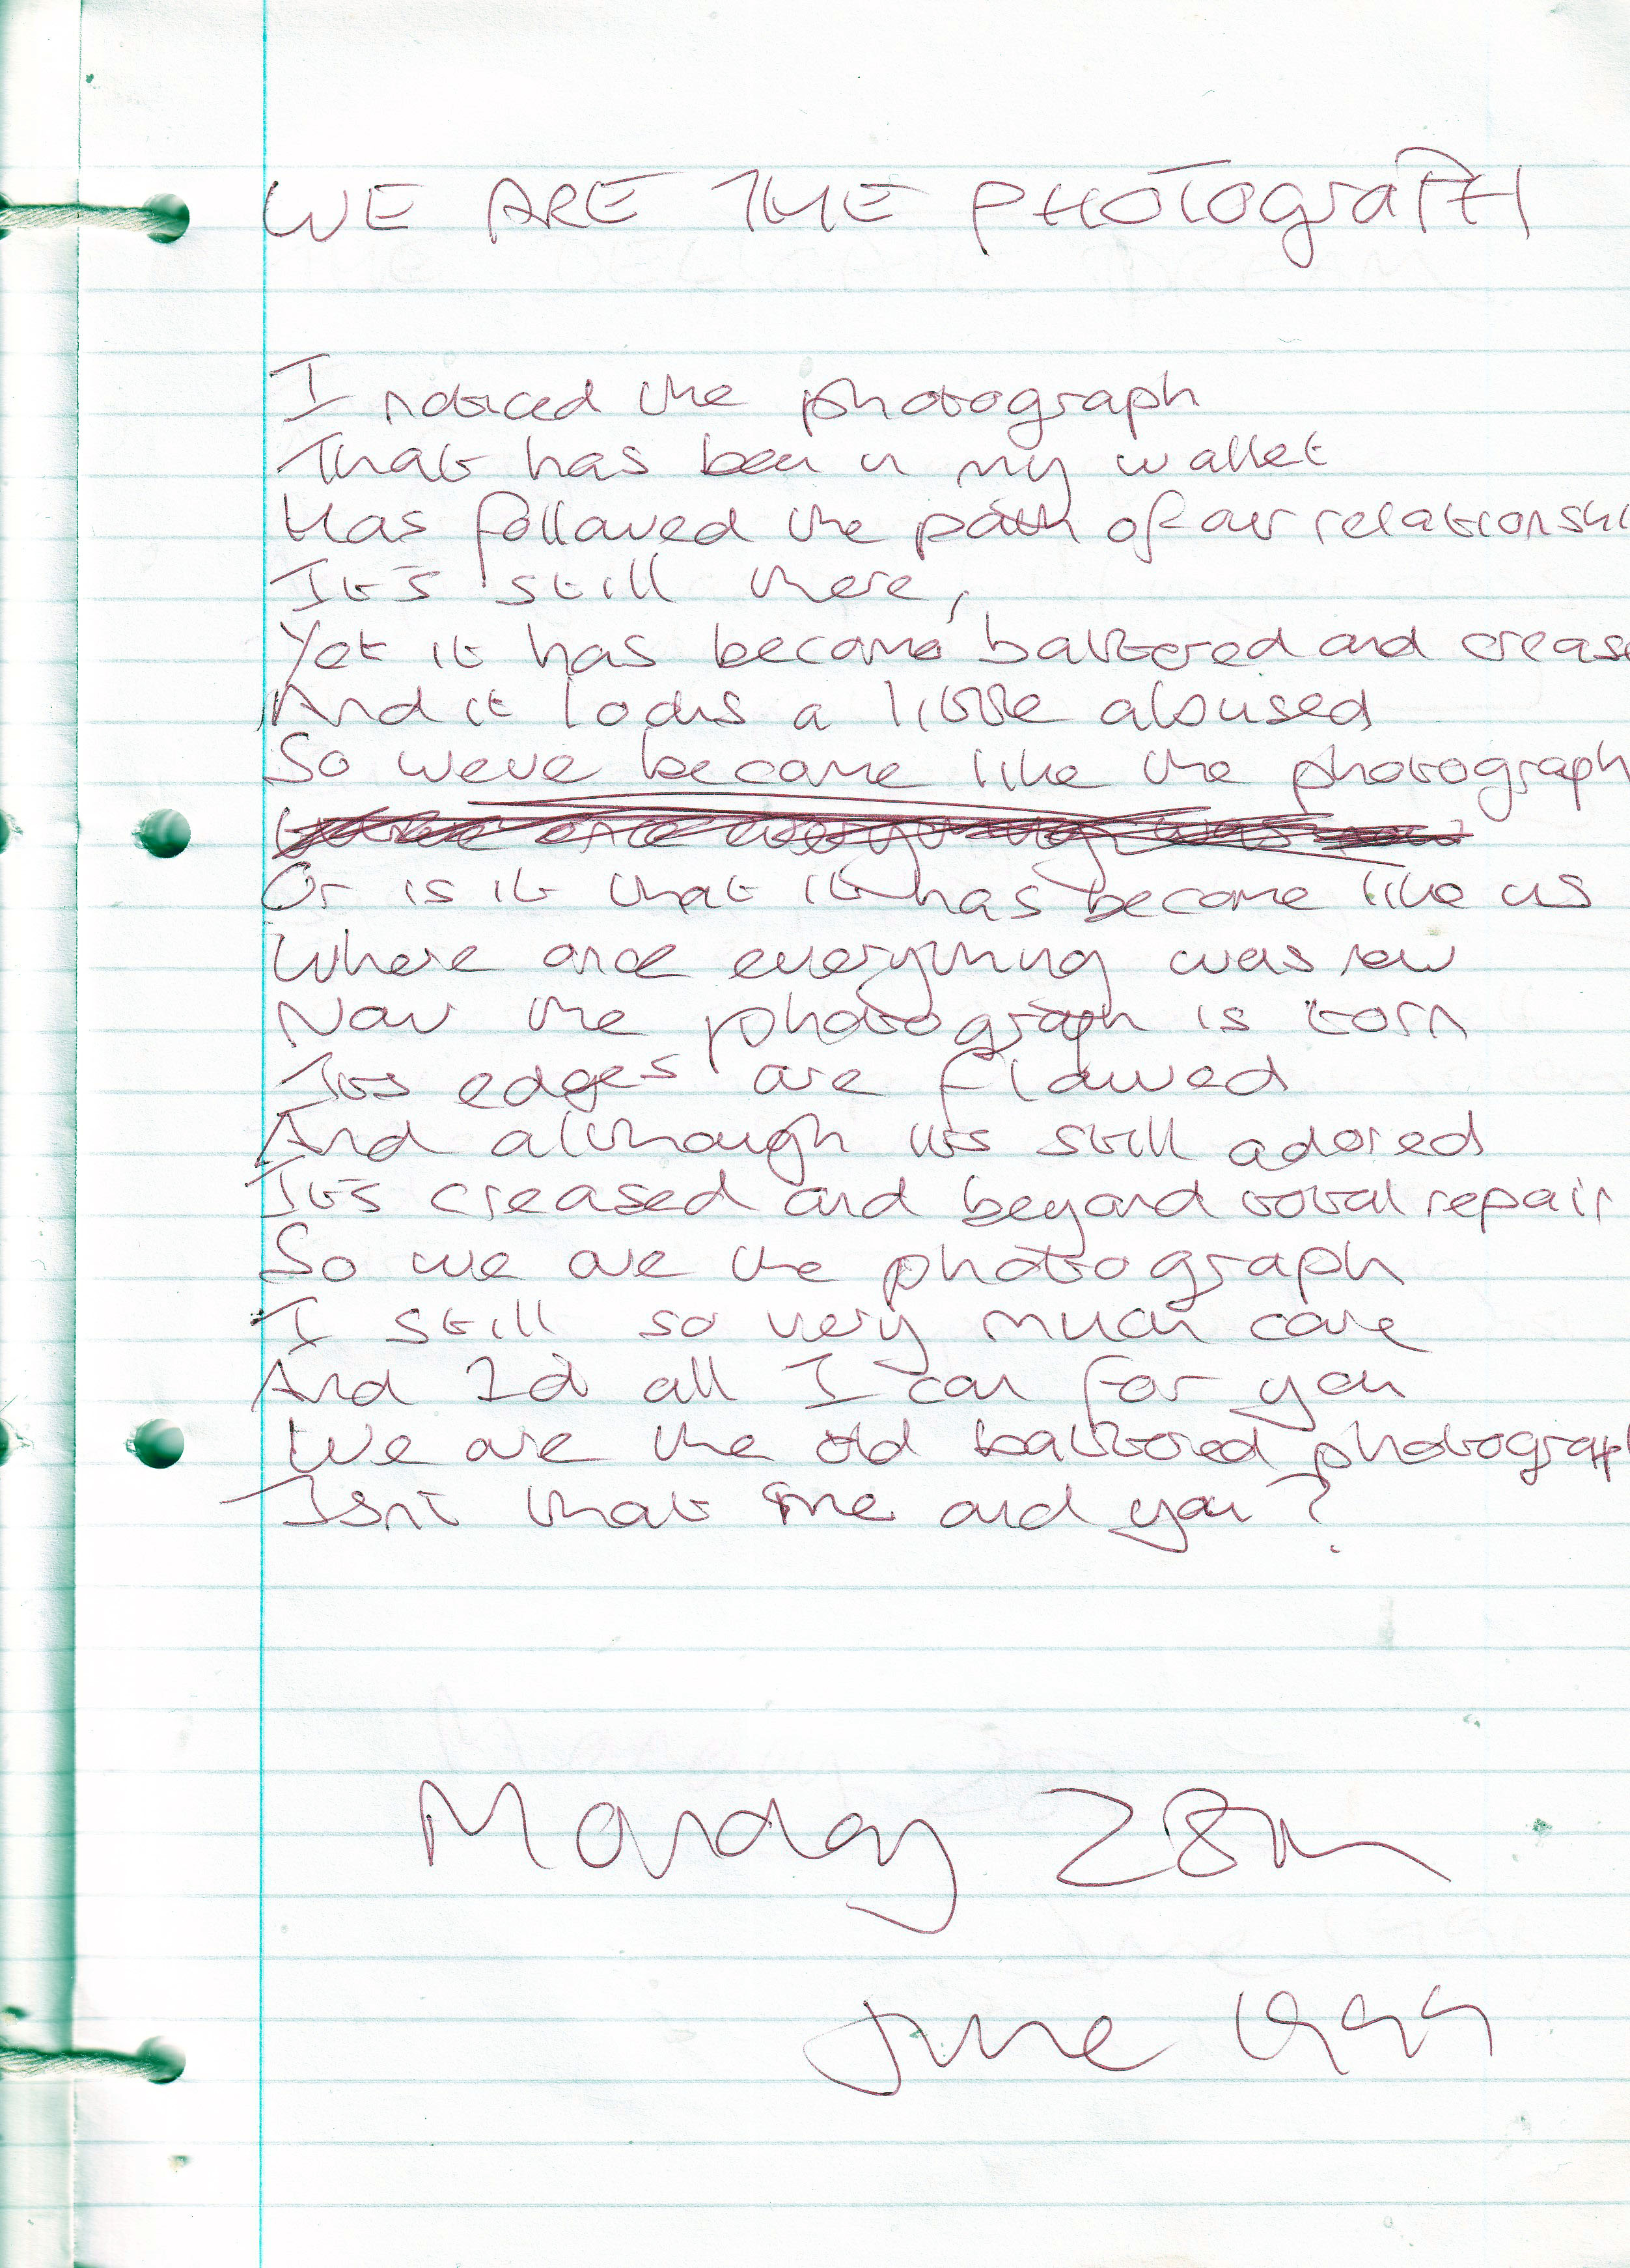 WE ARE THE PHOTOgraPH
I noticed the photograph
That has been in my wallet
Has followed the path of our relationshi
It's still there,
Yet it has become battered and crease
And it looks a little abused
So weve become like the photograph
Where once everything was new
Or is it that it has become like us
Where once everything was new
Now the photograph is torn
Its edges are flawed
And although its still adored
It's creased and beyond total repair
So we are the photograph
I still so very much care
And I'd all I can for you
We are the old battered photograph
Isn't that me and you?
Monday 28th
June 1999